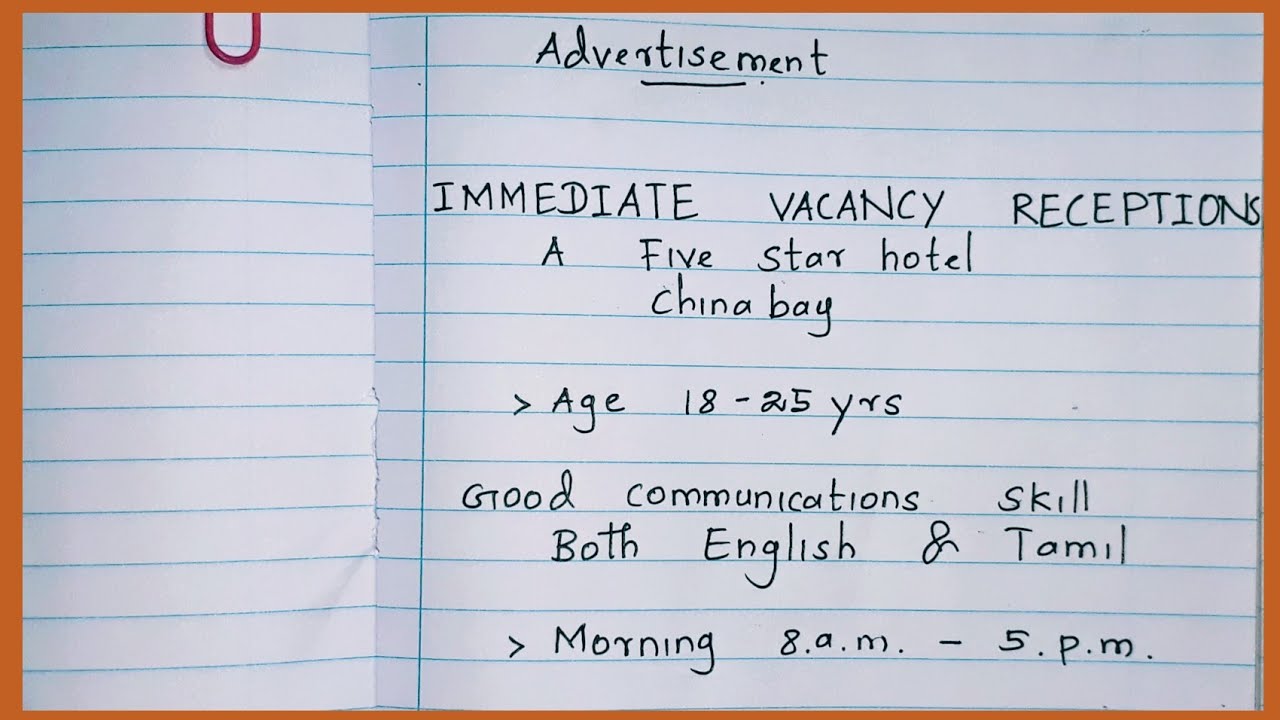 Advertisement
IMMEDIATE VACANCY RECEPTIONS
A Five star hotel
China bay
> Age 18 - 25 yrs
Good communications skill
Both English & Tamil
> Morning 8.a.m. - 5.p.m.